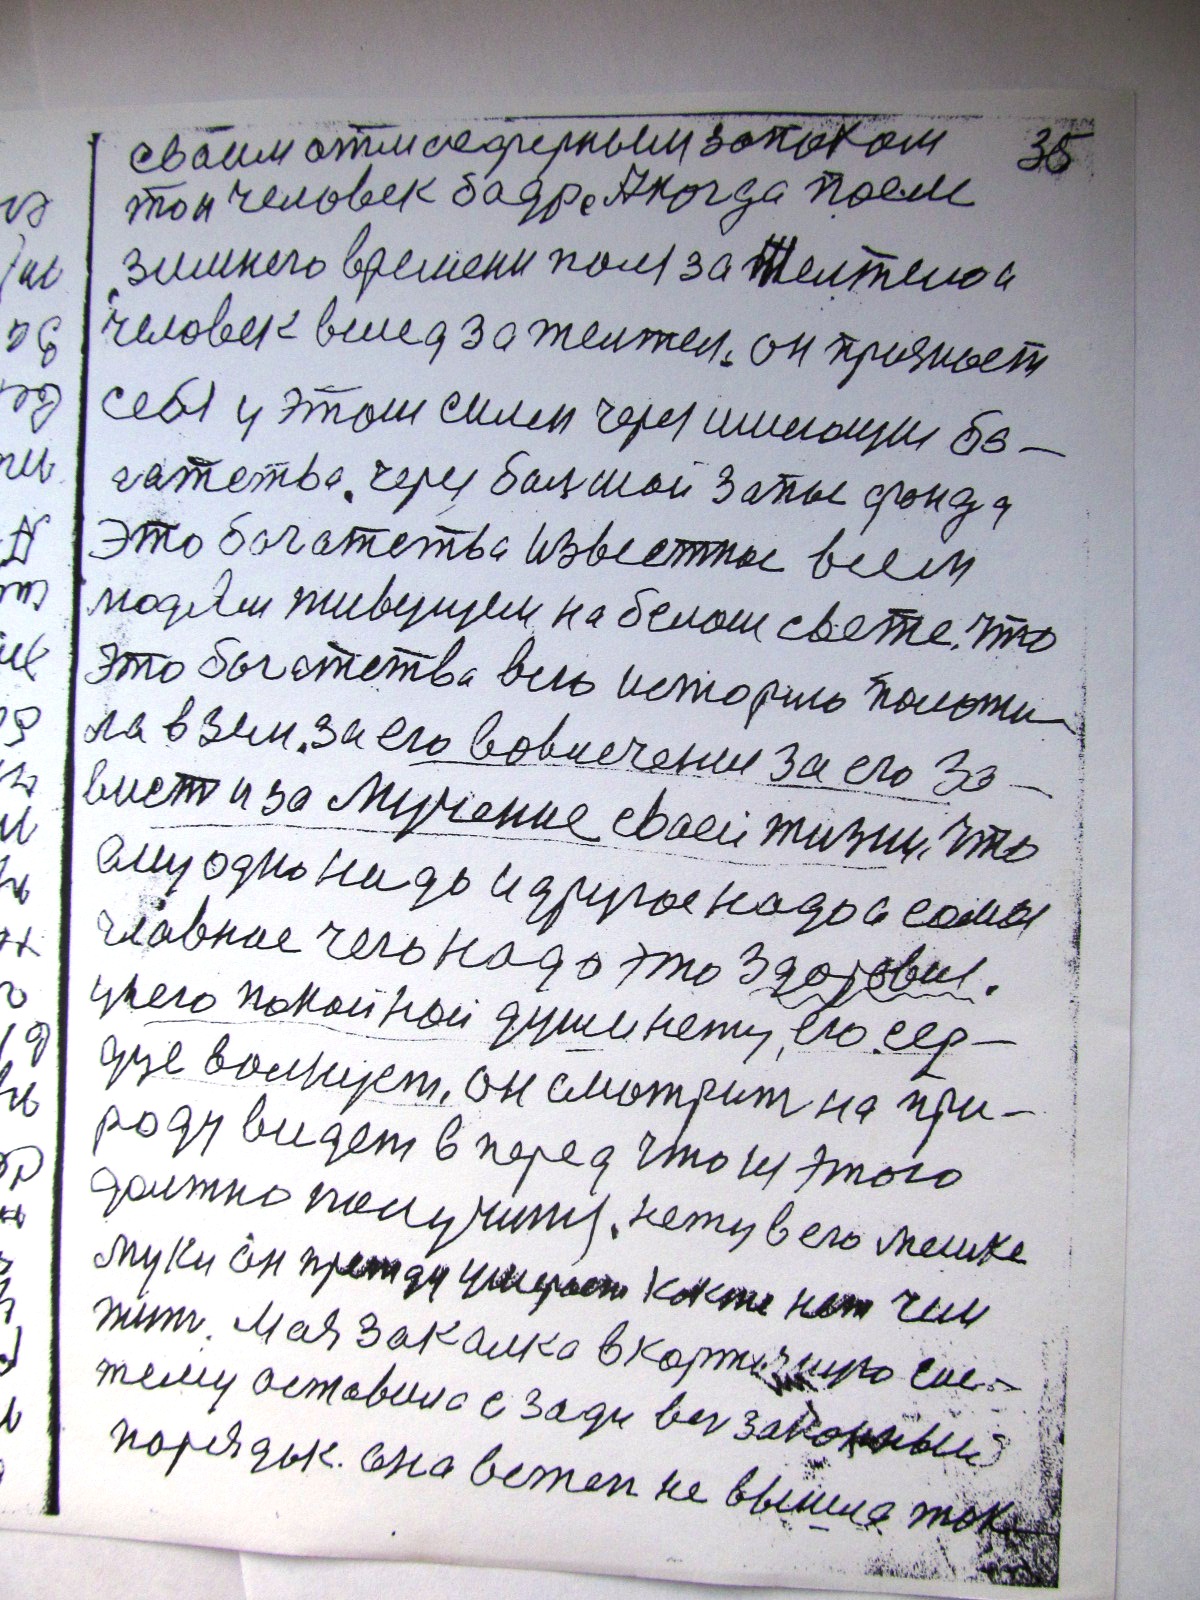 35
своим атмосферным запахом
тон человек бодр. А когда после
зимнего времени поля зажелтела
человек вслед зажелтел. он признает
себя у этом силен через имеющие ба-
гатства. через большой запас фонда
Это богатства известное всем
людям живущем на белом свете. что
это богатства всю историю положи-
ла в зем. за его вовлечения за его за-
висть и за мучение своей жизни. что
ему одно надо и другое надо а самая
главное чего надо это здоровья.
у него покойной души нету, его сер-
дце волнует. он смотрит на при-
роду видет в перед что из этого
должно получится. нету в его мешке
муки он прежду умерает как же нет чем
жить. Мая закалка в картежную сис-
тему оставила с зади вех законный
порядык. она встать не вышла так-